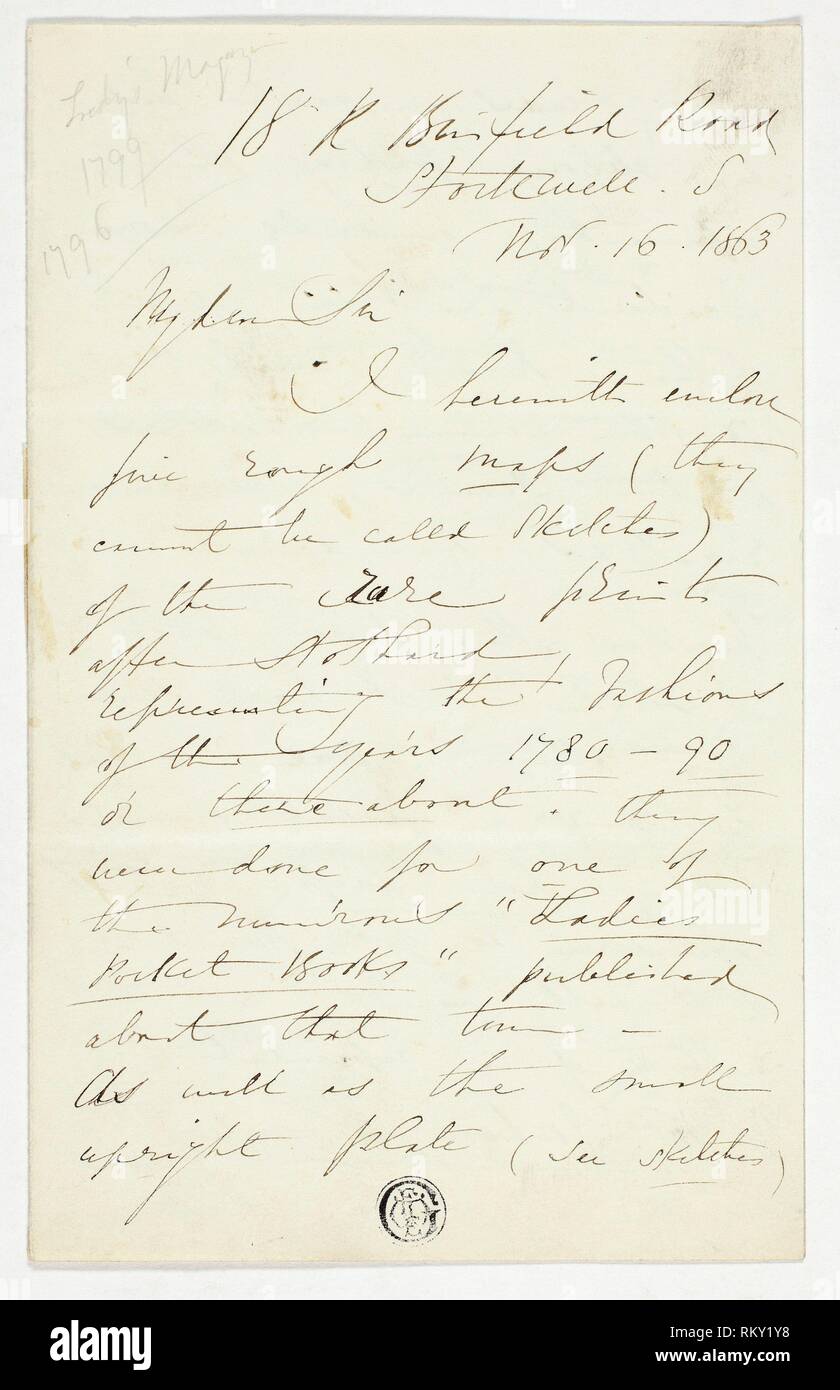 Lady's Magaz
1799
1796
18 R Binfield Road
Stockwell . S
Nov. 16 . 1863
My dear Sir
I herewith enclose
five rough maps (they
cannot be called sketches)
of the rare prints
after Stothard,
representing the fashions
of the years 1780 - 90
or there about. they
were done for one of
the numerous "Ladies
Pocket Books" published
about that time -
As well as the small
upright plate (see sketches)
alamy
Image ID: RKY1Y8
www.alamy.com